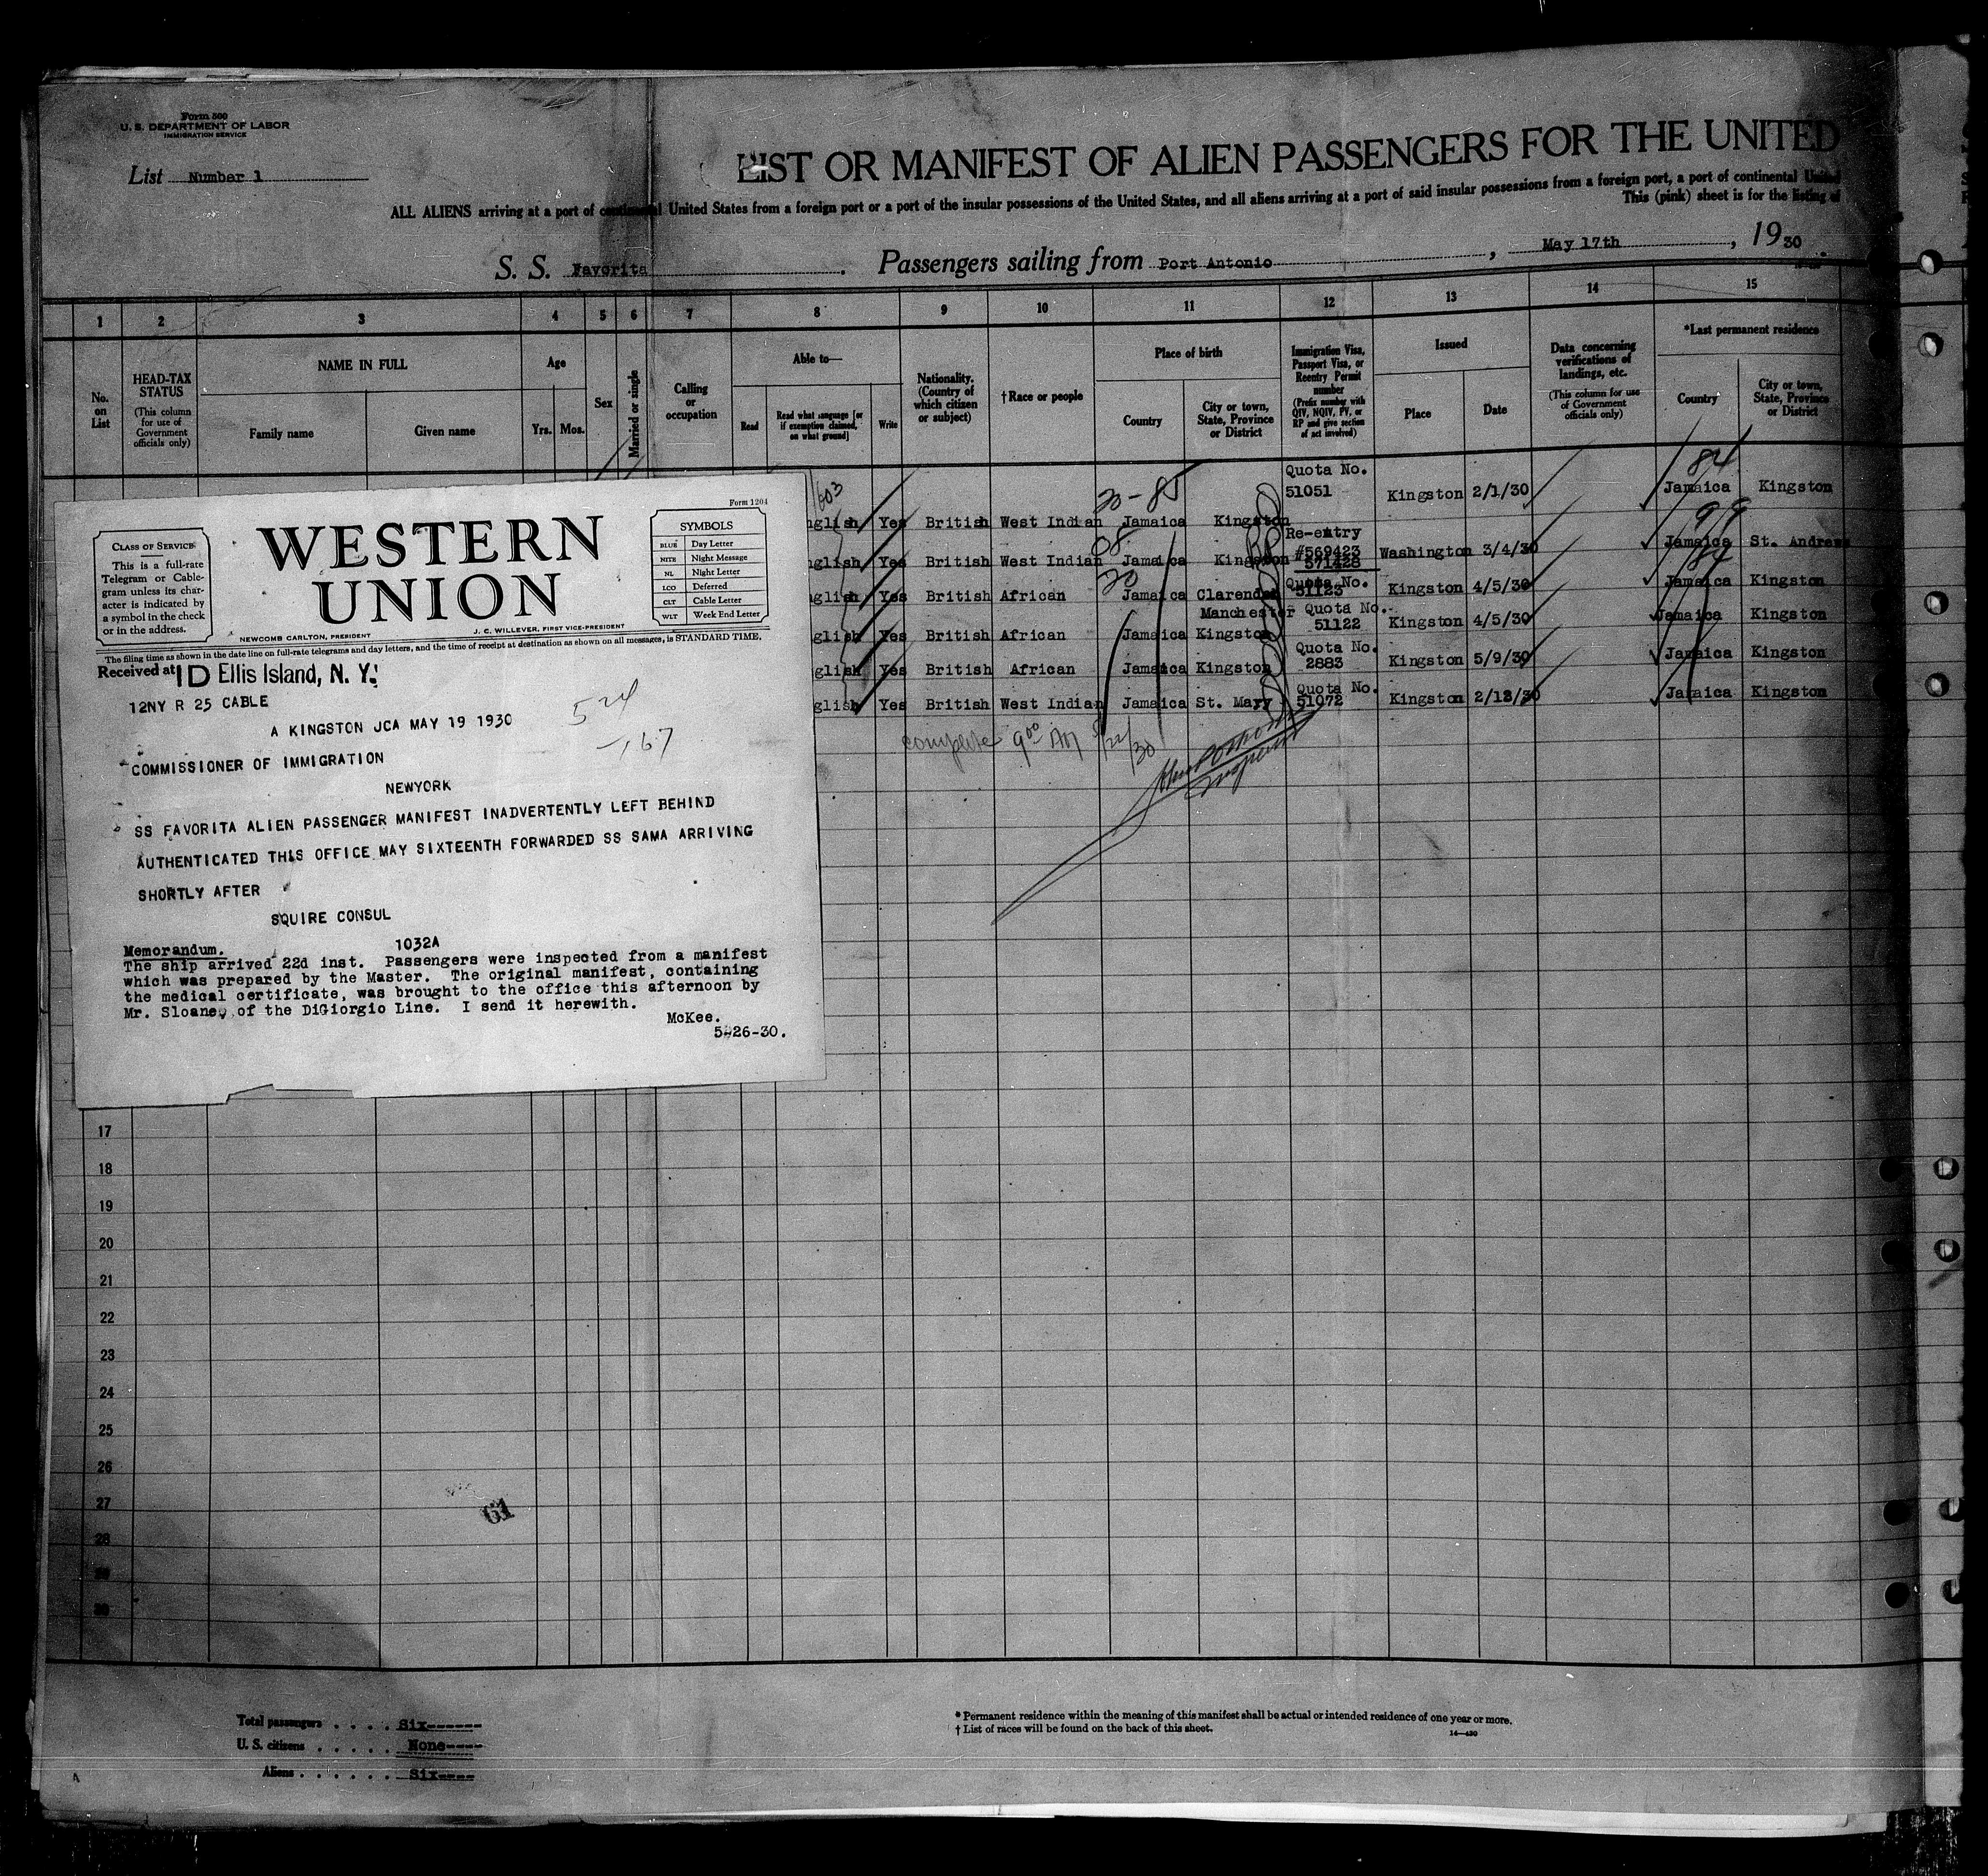 Form 500
U. S. DEPARTMENT OF LABOR
IMMIGRATION SERVICE
List Number 1
LIST OR MANIFEST OF ALIEN PASSENGERS FOR THE UNITED
ALL ALIENS arriving at a port of continental United States from a foreign port or a port of the insular possessions of the United States, and all aliens arriving at a port of said insular possessions from a foreign port, a port of continental United
This (pink) sheet is for the listing of
S. S. Favorita . Passengers sailing from Port Antonio , May 17th , 19 30
1 2 3 4 5 6 7 8 9 10 11 12 13 14 15
No. on List
HEAD-TAX STATUS
(This column for use of Government officials only)
NAME IN FULL
Family name
Given name
Age
Yrs. Mos.
Sex
Married or single
Calling or occupation
Able to—
Read
Read what language [or if exemption claimed, on what ground]
Write
Nationality. (Country of which citizen or subject)
†Race or people
Place of birth
Country
City or town, State, Province or District
Immigration Visa, Passport Visa, or Reentry Permit number
(Prefix number with QIV, NQIV, PV, or RP and give section of act involved)
Issued
Place
Date
Data concerning verifications of landings, etc.
(This column for use of Government officials only)
*Last permanent residence
Country
City or town, State, Province or District
nglish Yes British West Indian Jamaica Kingston Quota No. 51051 Kingston 2/1/30 Jamaica Kingston
nglish Yes British West Indian Jamaica Kingston Re-entry #569423 571428 Washington 3/4/30 Jamaica St. Andrew
nglish Yes British African Jamaica Clarendon Quota No. 51123 Kingston 4/5/30 Jamaica Kingston
glish Yes British African Jamaica Manchester Kingston Quota No. 51122 Kingston 4/5/30 Jamaica Kingston
glish Yes British African Jamaica Kingston Quota No. 2883 Kingston 5/9/30 Jamaica Kingston
glish Yes British West Indian Jamaica St. Mary Quota No. 51072 Kingston 2/18/30 Jamaica Kingston
1603
20-85
08
20
84
99
84
complete 9 00 AM 5/22/30
Inspector
Form 1204
CLASS OF SERVICE
This is a full-rate
Telegram or Cable-
gram unless its char-
acter is indicated by
a symbol in the check
or in the address.
WESTERN
UNION
SYMBOLS
BLUE Day Letter
NITE Night Message
NL Night Letter
LCO Deferred
CLT Cable Letter
WLT Week End Letter
NEWCOMB CARLTON, PRESIDENT
J. C. WILLEVER, FIRST VICE-PRESIDENT
The filing time as shown in the date line on full-rate telegrams and day letters, and the time of receipt at destination as shown on all messages, is STANDARD TIME.
Received at ID Ellis Island, N. Y.
12NY R 25 CABLE
A KINGSTON JCA MAY 19 1930
524
-167
COMMISSIONER OF IMMIGRATION
NEWYORK
SS FAVORITA ALIEN PASSENGER MANIFEST INADVERTENTLY LEFT BEHIND
AUTHENTICATED THIS OFFICE MAY SIXTEENTH FORWARDED SS SAMA ARRIVING
SHORTLY AFTER
SQUIRE CONSUL
1032A
Memorandum.
The ship arrived 22d inst. Passengers were inspected from a manifest
which was prepared by the Master. The original manifest, containing
the medical certificate, was brought to the office this afternoon by
Mr. Sloane, of the DiGiorgio Line. I send it herewith.
McKee.
5-26-30.
17
18
19
20
21
22
23
24
25
26
27
28
29
30
61
Total passengers . . . . Six------
U. S. citizens . . . . . None----
Aliens . . . . . . Six----
* Permanent residence within the meaning of this manifest shall be actual or intended residence of one year or more.
† List of races will be found on the back of this sheet.
14—430